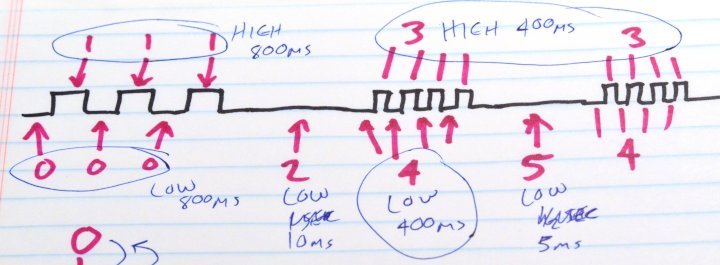 1 1 1 HIGH
800ms
3 HIGH 400ms 3
0 0 0 LOW
800ms
2 4 5 4
LOW LOW LOW
10ms 400ms 5ms
0
1